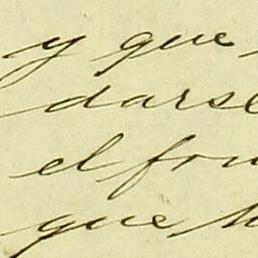 y que
darse
el
que